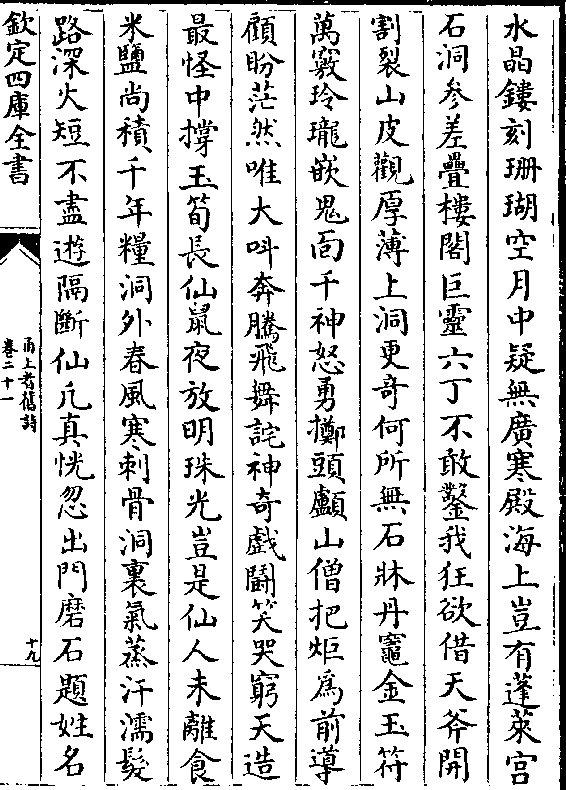 水晶鏤刻珊瑚空月中疑無廣寒殿海上豈有蓬萊宫
石洞參差疊樓閣巨靈六丁不敢鑿我狂欲借天斧開
割裂山皮觀厚薄上洞更奇何所無石牀丹竈金玉符
萬竅玲瓏嵌鬼面千神怒勇擲頭顱山僧把炬為前導
顧盼茫然唯大呌奔騰飛舞詫神奇戲鬬笑哭窮天造
最怪中撐玉筍長仙鼠夜放明珠光豈是仙人未離食
米鹽尚積千年糧洞外春風寒刺骨洞裏氣蒸汗濡髮
路深火短不盡遊隔斷仙凡真恍忽出門磨石題姓名
欽定四庫全書
甬上耆舊詩
卷二十一
十九